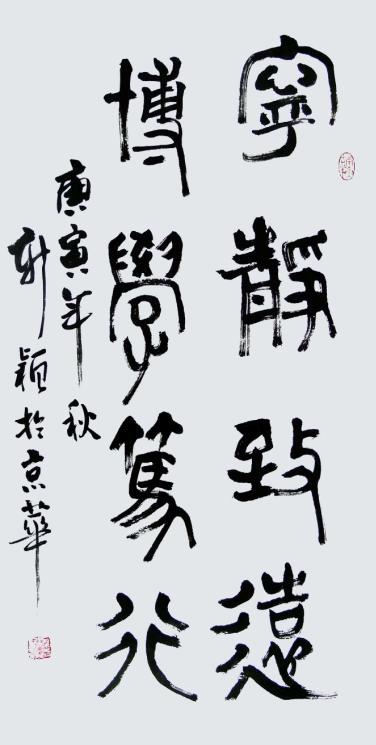 寧靜致遠
博學篤行
庚寅年秋
穎於京華